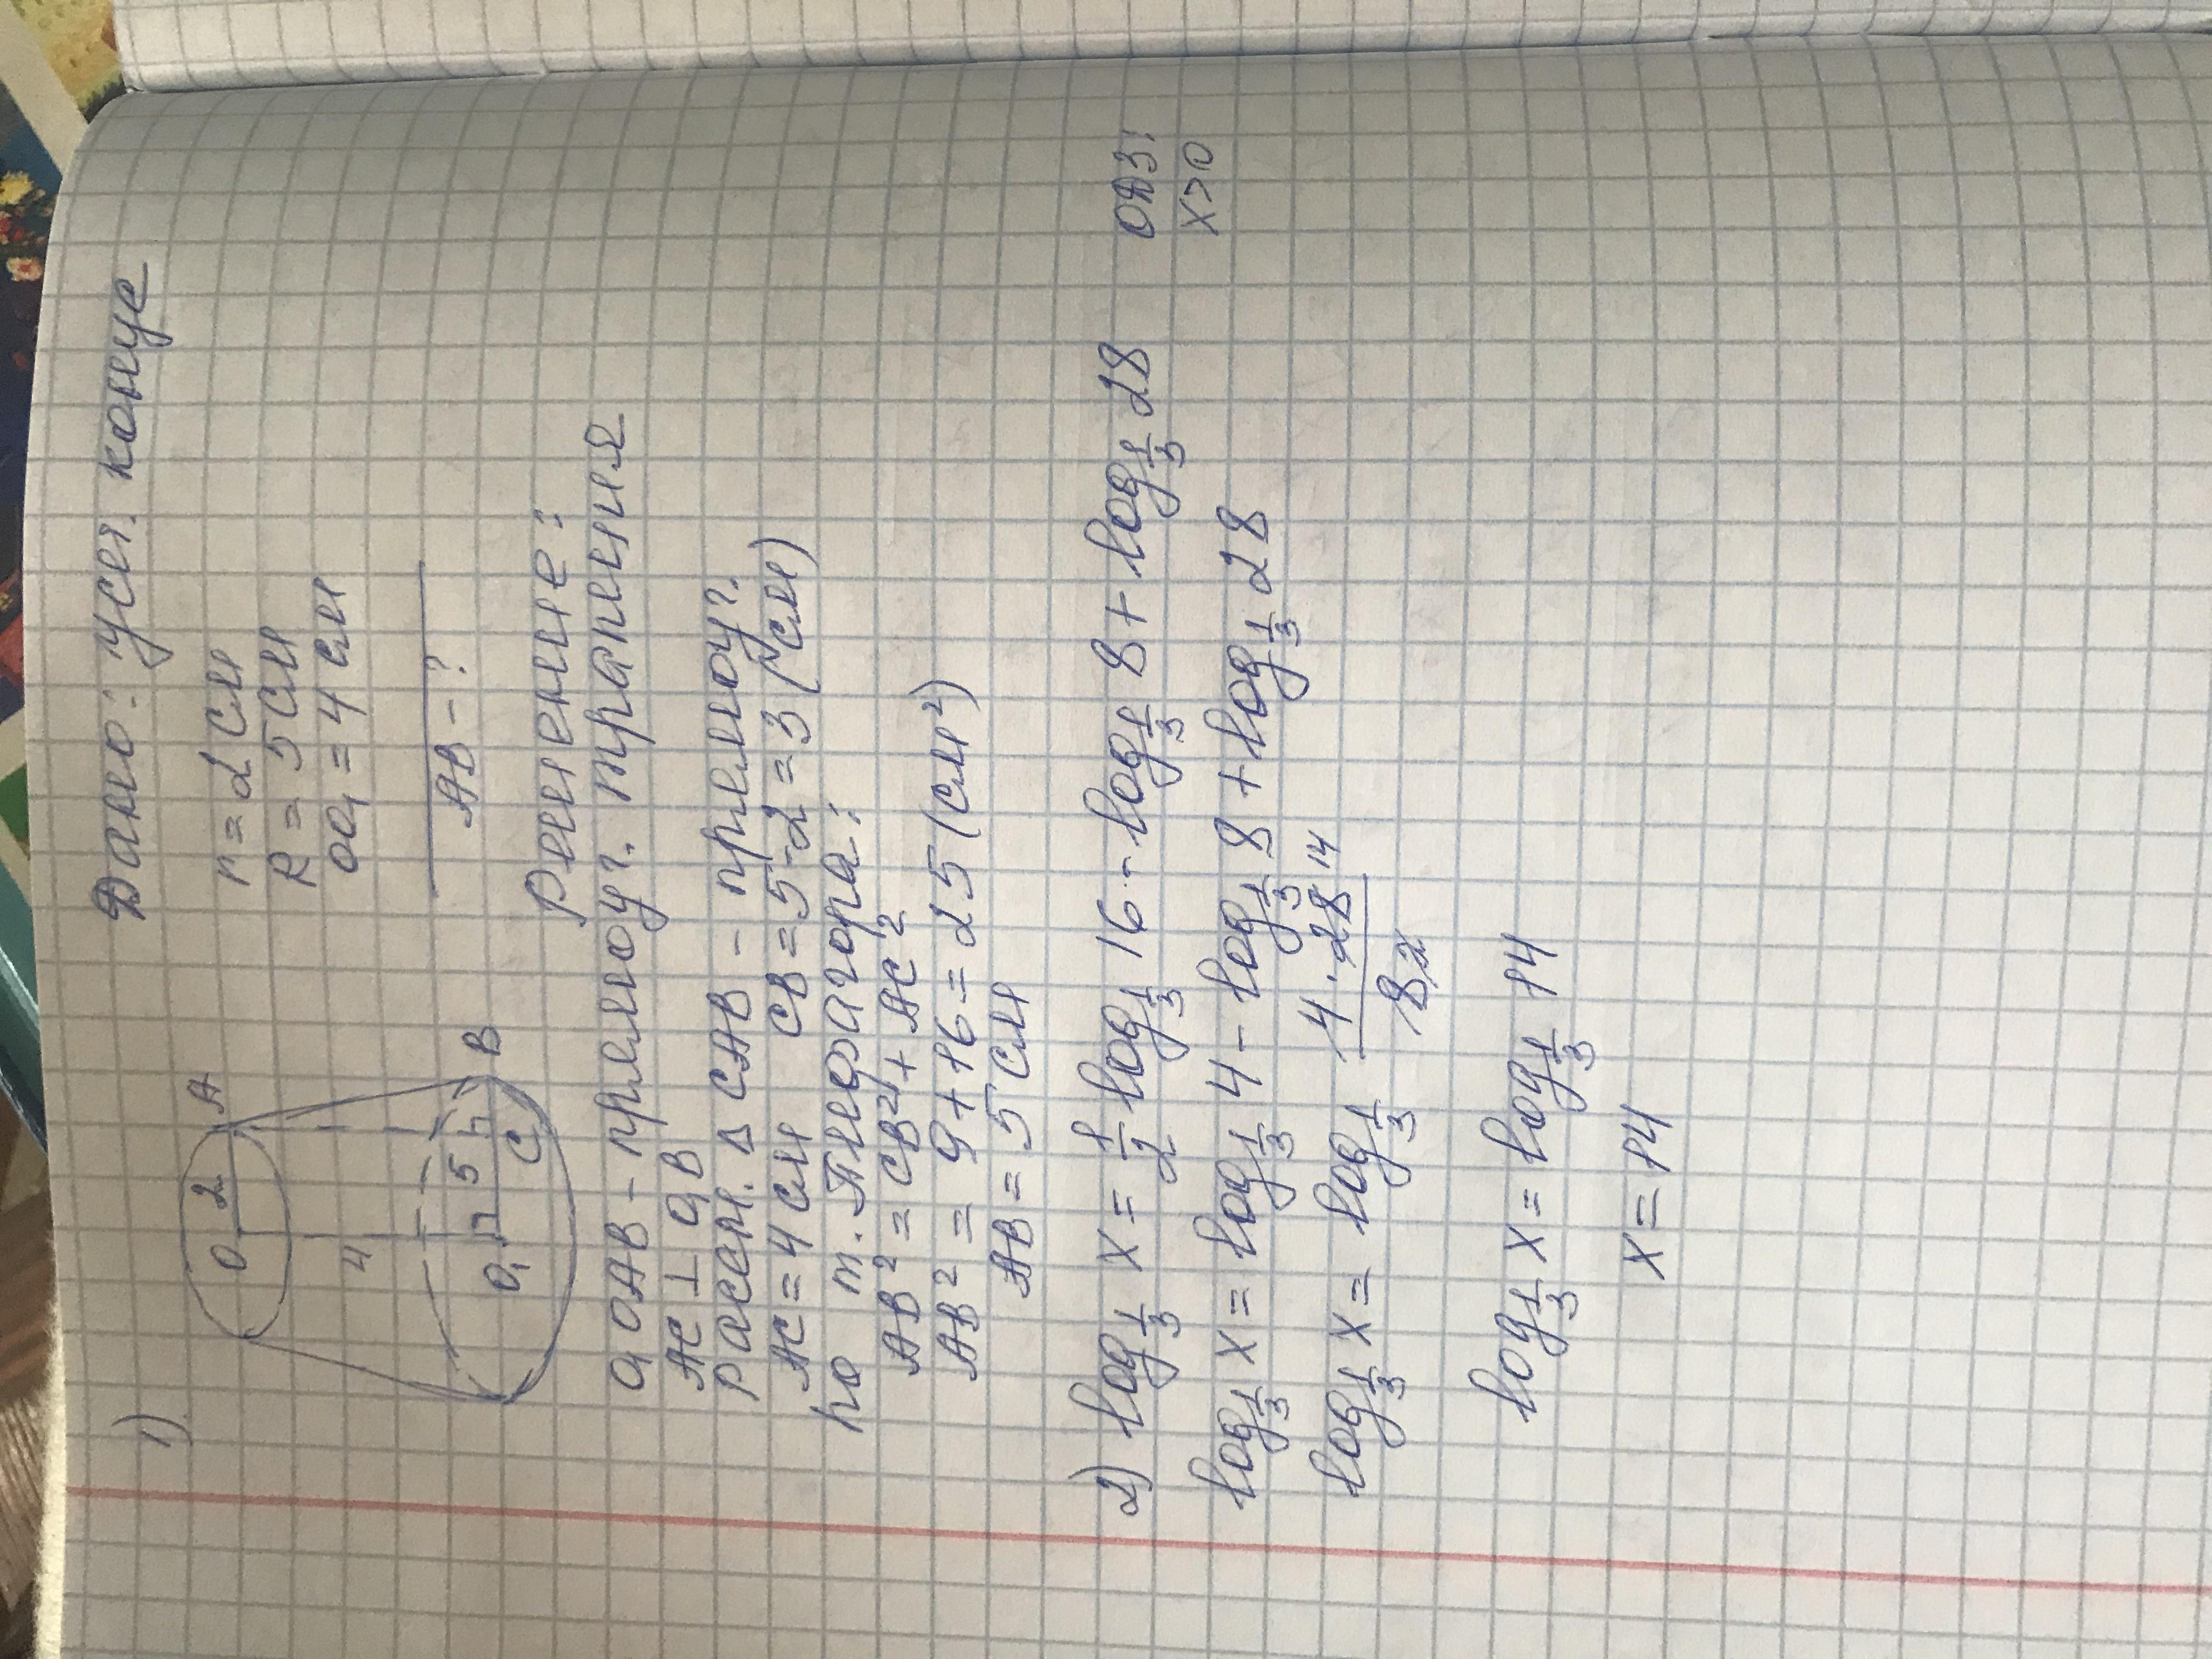 1)
Дано: усеч. конус
r = 2 см
R = 5 см
OO₁ = 4 см
AB - ?
O 2 A
4
O₁ 5 C B
Решение:
O₁OAB - прямоуг. трапеция
AC ⊥ O₁B
Рассм. Δ CAB - прямоуг.
AC = 4 см CB = 5-2 = 3 (см)
по т. Пифагора:
AB² = CB² + AC²
AB² = 9 + 16 = 25 (см²)
AB = 5 см
2) log 1/3 x = 1/2 log 1/3 16 - log 1/3 8 + log 1/3 28 ОДЗ:
x>0
log 1/3 x = log 1/3 4 - log 1/3 8 + log 1/3 28
log 1/3 x = log 1/3 4 · 28 14 / 8 2
log 1/3 x = log 1/3 14
x = 14